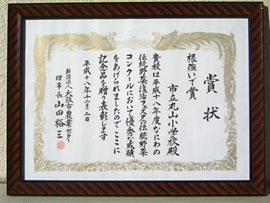 賞状
根強いで賞
市立丸山小学校殿
貴校は平成十八年度なにわの
伝統野菜復活フェスタの伝統野菜
コンクールにおいて優秀な成績
をあげられましたのでここに
記念品を贈り表彰します
平成十八年十二月二日
理事長山田裕三